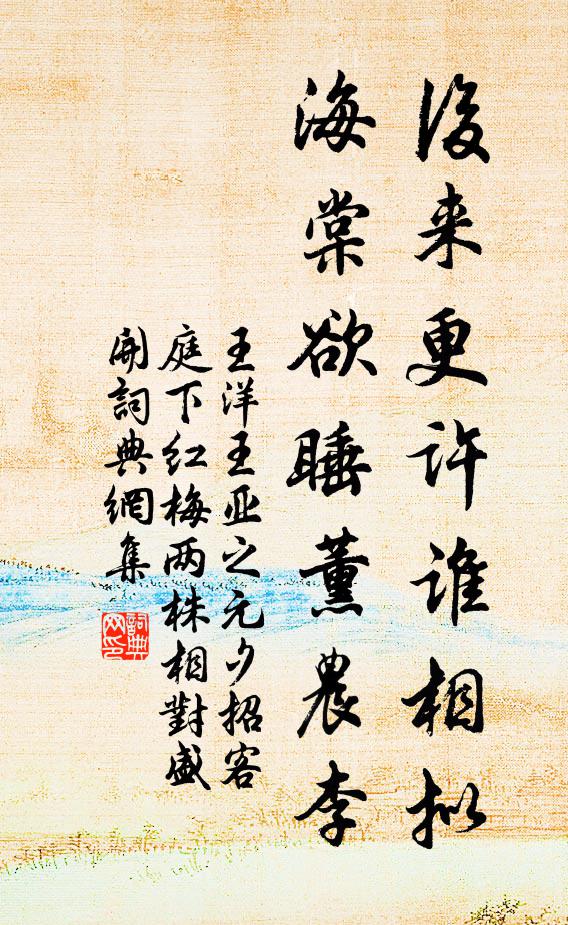 後来更许谁相拟
海棠欲睡薰農李
王洋王亚之元夕招客
庭下红梅两株相對盛
開詞典網集
詞典网印